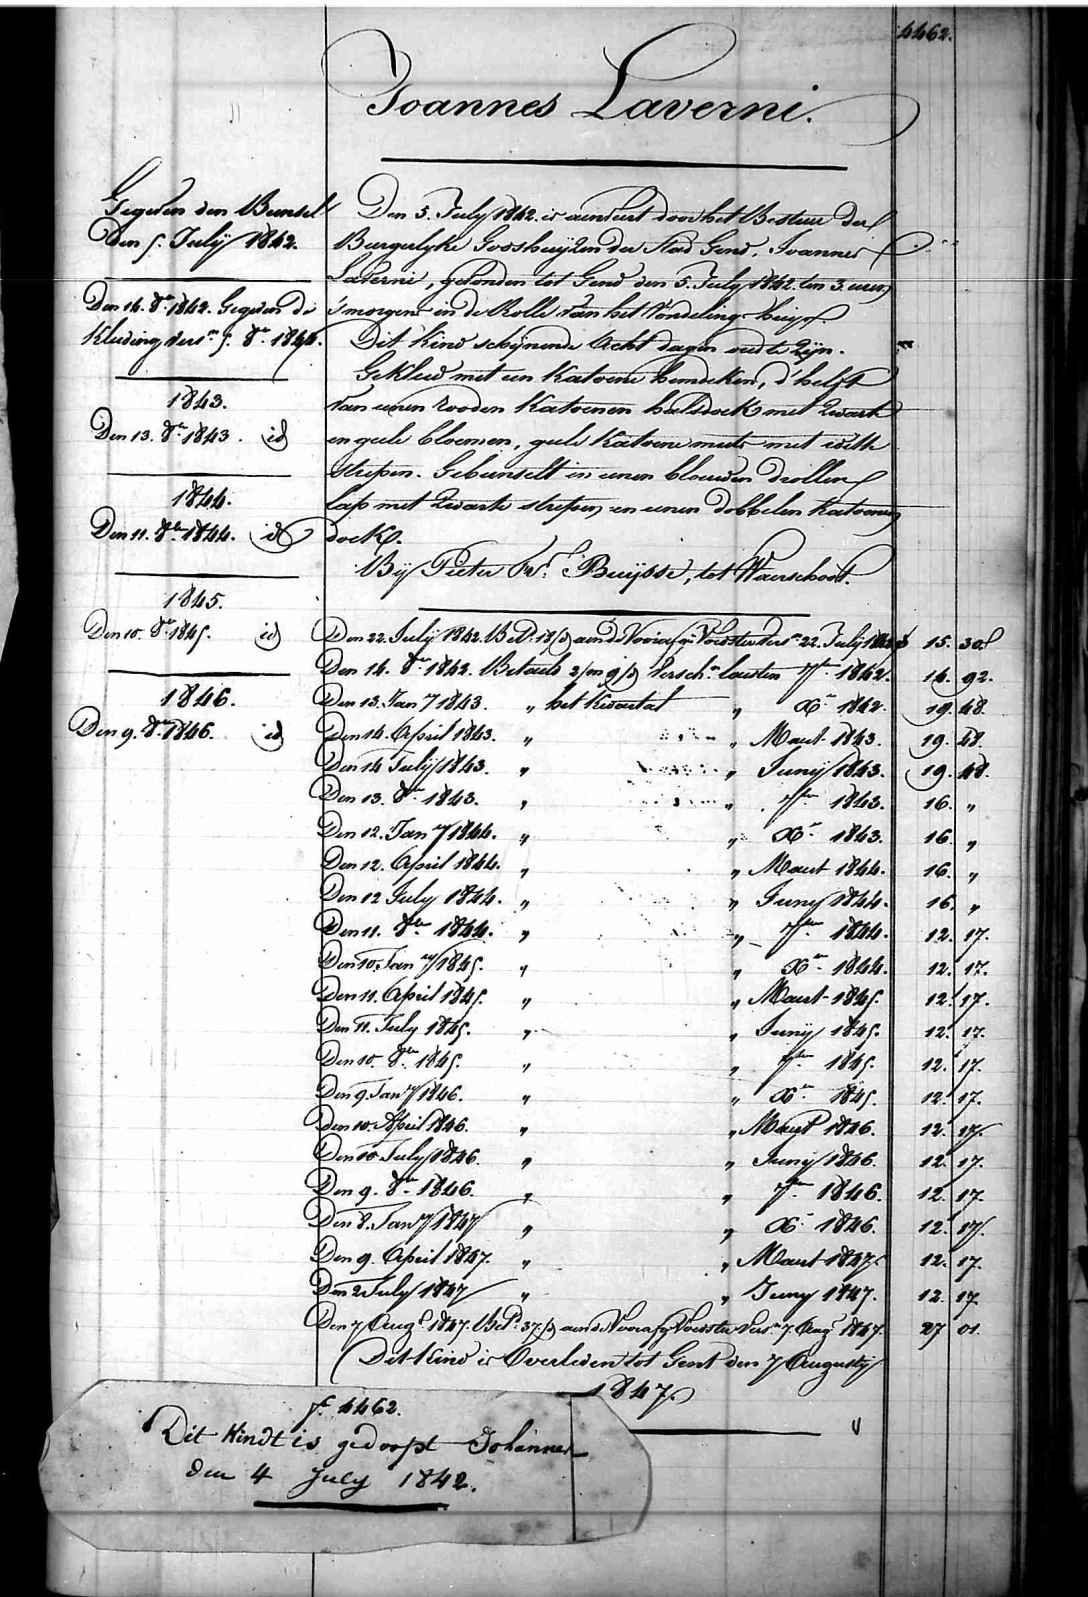 4462.
Joannes Laverni.
Gegeven den Bunsel
Den 5. July 1842.
Den 14. 8er 1842. Gegeven de
Kleeding vers. 5. 8er 1842.
1843.
Den 13. 8er 1843. id
1844.
Den 11. 8er 1844. id
1845.
Den 10. 8er 1845. id
1846.
Den 9. 8er 1846. id
Den 5. July 1842. is aenveirt door het Bestuer der
Burgerlyke Godshuyzen der Stad Gend, Joannes
Laverni, gevonden tot Gend den 5. July 1842. ten 3. uren
's morgens in de Rolle van het Vondeling-huys.
Dit kind schynende Acht dagen oud te zyn.
Gekleed met een Katoene hemdeken, d'helft
van eenen rooden Katoenen halsdoek met Zwarte
en geele bloemen, geele Katoene muts met witte
strepen. Gebunselt in eenen blouwen drollen
lap met Zwarte strepen en eenen dobbelen Katoenen
doek.
Bij Pieter Fr. Buysse, tot Waerschoot.
Den 22. July 1842. Bet. 18/ aen de Voorafg. Voedster vers. 22. July 1842 15. 30
Den 14. 8er 1842. Betaelt 2/m 9/d versch. lauwten 7ber 1842. 14. 92.
Den 13. Jany 1843. " het Kwartal " Xer 1842. 19. 48.
Den 14. April 1843. " " Maert 1843. 19. 48.
Den 14 July 1843. " " Juny 1843. 19. 48.
Den 13. 8er 1843. " " 7ber 1843. 16. "
Den 12. Jany 1844. " " Xer 1843. 16. "
Den 12. April 1844. " " Maert 1844. 16. "
Den 12 July 1844. " " Juny 1844. 16. "
Den 11. 8er 1844. " " 7ber 1844. 12. 17.
Den 10. Jany 1845. " " Xer 1844. 12. 17.
Den 11. April 1845. " " Maert 1845. 12. 17.
Den 11. July 1845. " " Juny 1845. 12. 17.
Den 10. 8er 1845. " " 7ber 1845. 12. 17.
Den 9. Jany 1846. " " Xer 1845. 12. 17.
Den 10. April 1846. " " Maert 1846. 12. 17.
Den 10 July 1846. " " Juny 1846. 12. 17.
Den 9. 8er 1846. " " 7ber 1846. 12. 17
Den 8. Jany 1847 " " Xer 1846. 12. 17.
Den 9. April 1847. " " Maert 1847. 12. 17.
Den 2 July 1847 " " Juny 1847. 12. 17
Den 7 Augt 1847. Bet. 37/ aen de Voorafg. Voedster vers. 7. Augt 1847. 27 01.
Dit Kind is Overleden tot Gent den 7 Augusty
1847.
f. 4462.
Dit Kindt is gedoopt Johannes
den 4 July 1842.